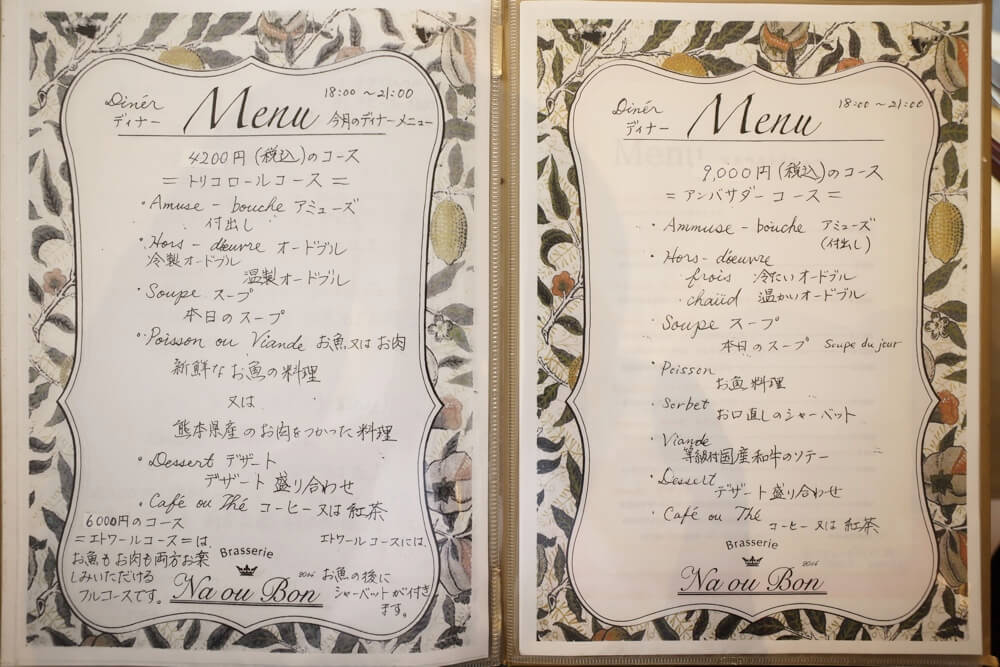 Dinér
ディナー
Menu
18:00 〜 21:00
今月のディナーメニュー
4200円(税込)のコース
= トリコロールコース =
・Amuse - bouche アミューズ
付出し
・Hors - dœuvre オードブル
冷製オードブル
温製オードブル
・Soupe スープ
本日のスープ
・Poisson ou Viande お魚又はお肉
新鮮なお魚の料理
又は
熊本県産のお肉をつかった料理
・Dessert デザート
デザート盛り合わせ
・Café ou Thé コーヒー又は紅茶
6000円のコース
=エトワールコース=は
お魚もお肉も両方お楽
しみいただける
フルコースです。
エトワールコースには、
お魚の後に
シャーベットが付き
ます。
Brasserie
Na ou Bon
Dinér
ディナー
Menu
18:00 〜 21:00
9,000円(税込)のコース
= アンバサダーコース =
・Ammuse - bouche アミューズ
(付出し)
・Hors - dœuvre
frois 冷たいオードブル
・chaüd 温かいオードブル
・Soupe スープ
本日のスープ Soupe du jour
・Poisson
お魚料理
・Sorbet
お口直しのシャーベット
・Viande
等級付国産和牛のソテー
・Dessert
デザート盛り合わせ
・Café ou Thé
コーヒー又は紅茶
Brasserie
Na ou Bon